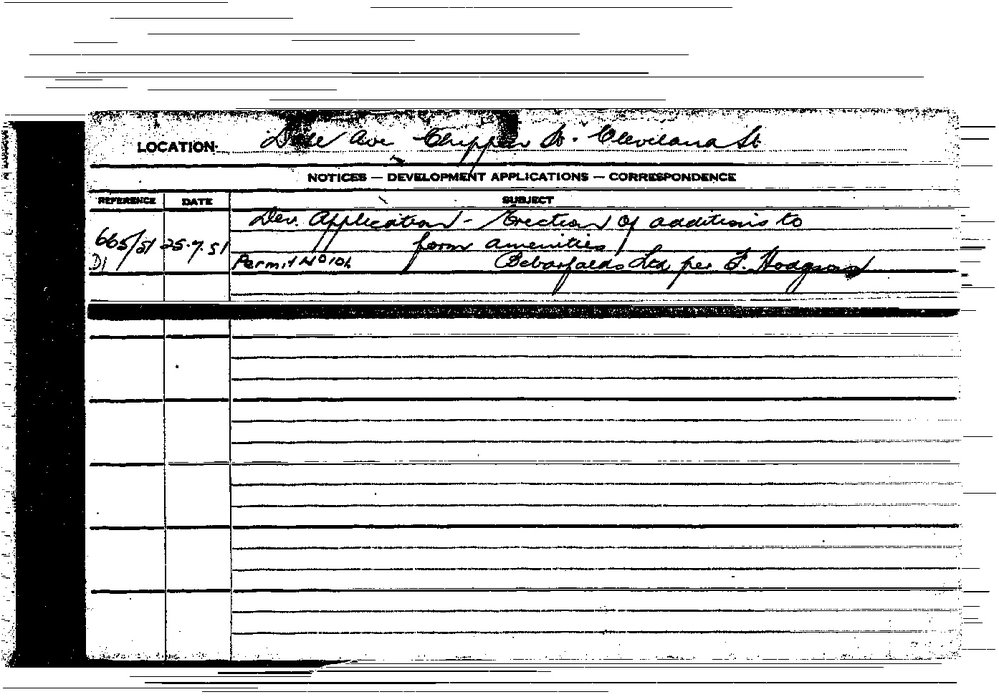 LOCATION. Dale Ave Chippen St. Cleveland St
NOTICES — DEVELOPMENT APPLICATIONS — CORRESPONDENCE
REFERENCE DATE SUBJECT
Dev. Application - Erection of additions to
665/51 25.9.51 form amenities
D1 Permit No 102 Bebarfalds Ltd per F. Hodgson